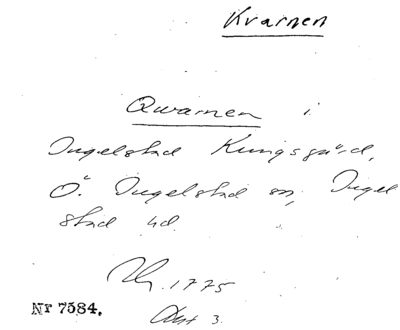 Kvarnen
Qwarnen i
Ingelstad Kungsgård,
Ö. Ingelstad sn, Ingel
stad hd.
1775
Akt 3.
Nr 7584.